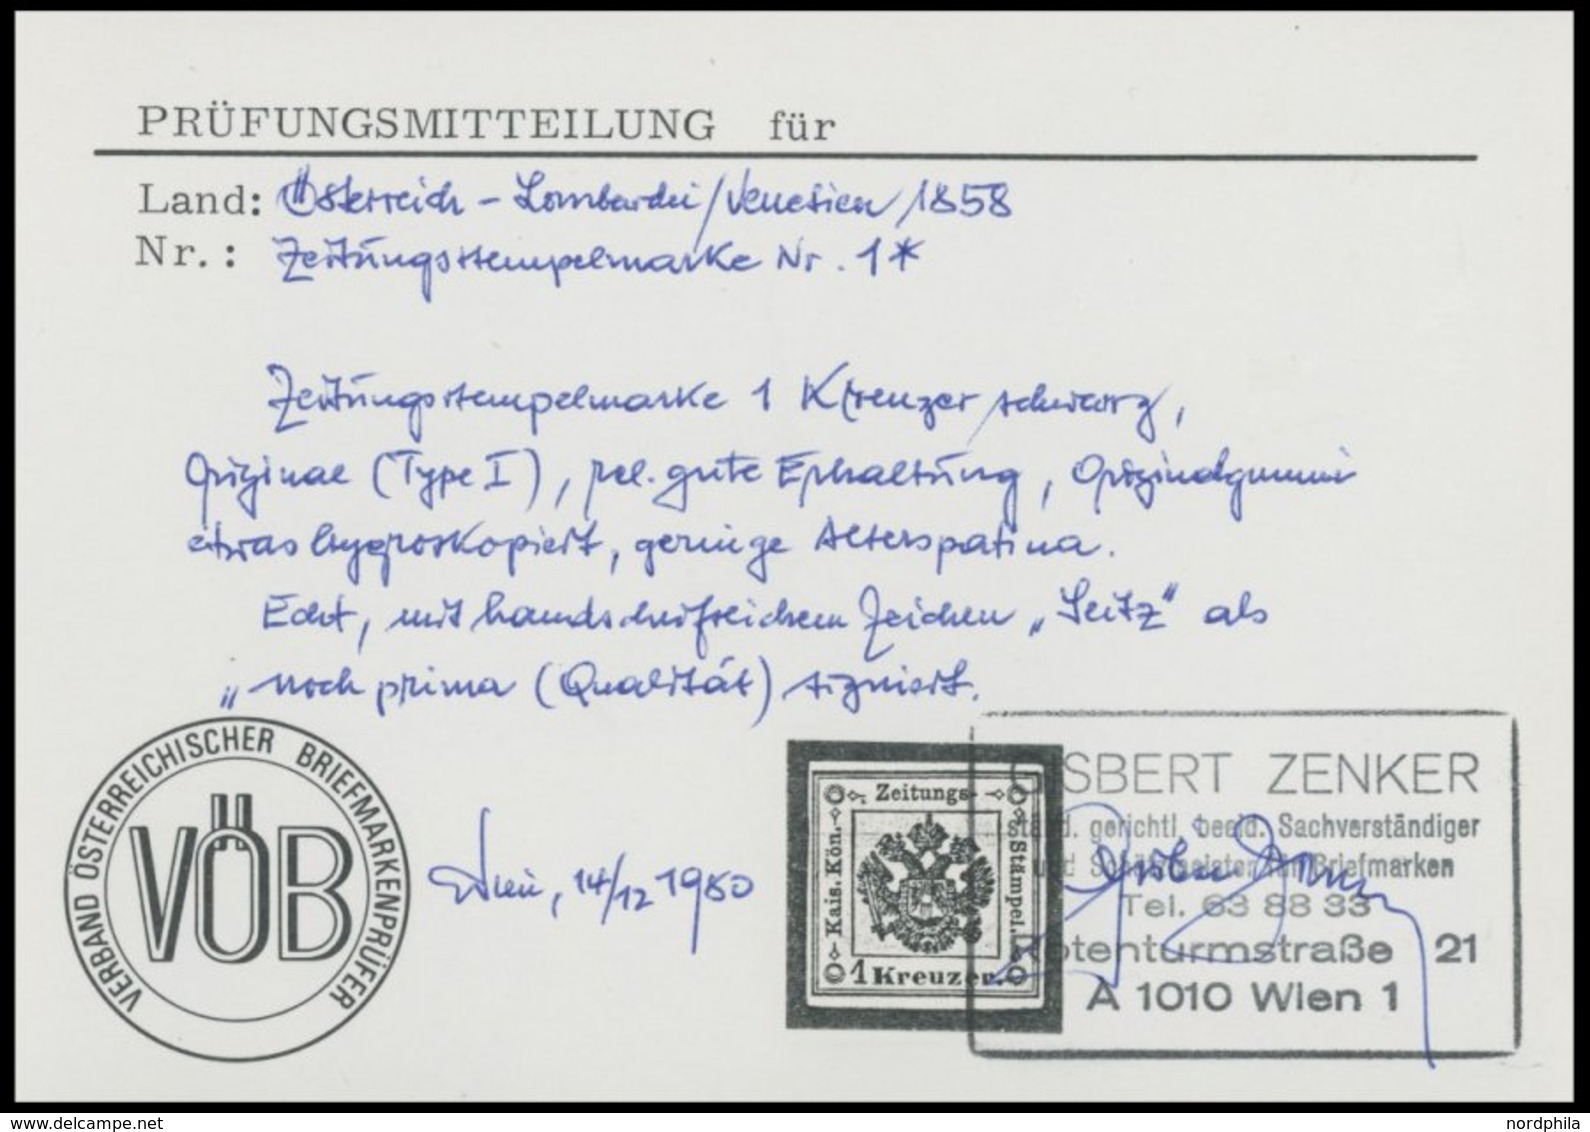 PRÜFUNGSMITTEILUNG für
Land: Österreich - Lombardei/Venetien 1858
Nr.: Zeitungsstempelmarke Nr. 1*
Zeitungsstempelmarke 1 Kreuzer schwarz,
Original (Type I), rel. gute Erhaltung, Originalgummi
etwas hygroskopiert, geringe Alterspatina.
Echt, mit handschriftlichem Zeichen „Seitz" als
„noch prima (Qualität) signiert.
VERBAND ÖSTERREICHISCHER BRIEFMARKENPRÜFER
VÖB
Wien, 14/12 1980
Zeitungs-
Kais. Kön.
Stämpel.
1 Kreuzer.
GISBERT ZENKER
ständ. gerichtl. beeid. Sachverständiger
und Schätzmeister für Briefmarken
Tel. 63 88 33
Rotenturmstraße 21
A 1010 Wien 1
www.delcampe.net
nordphila